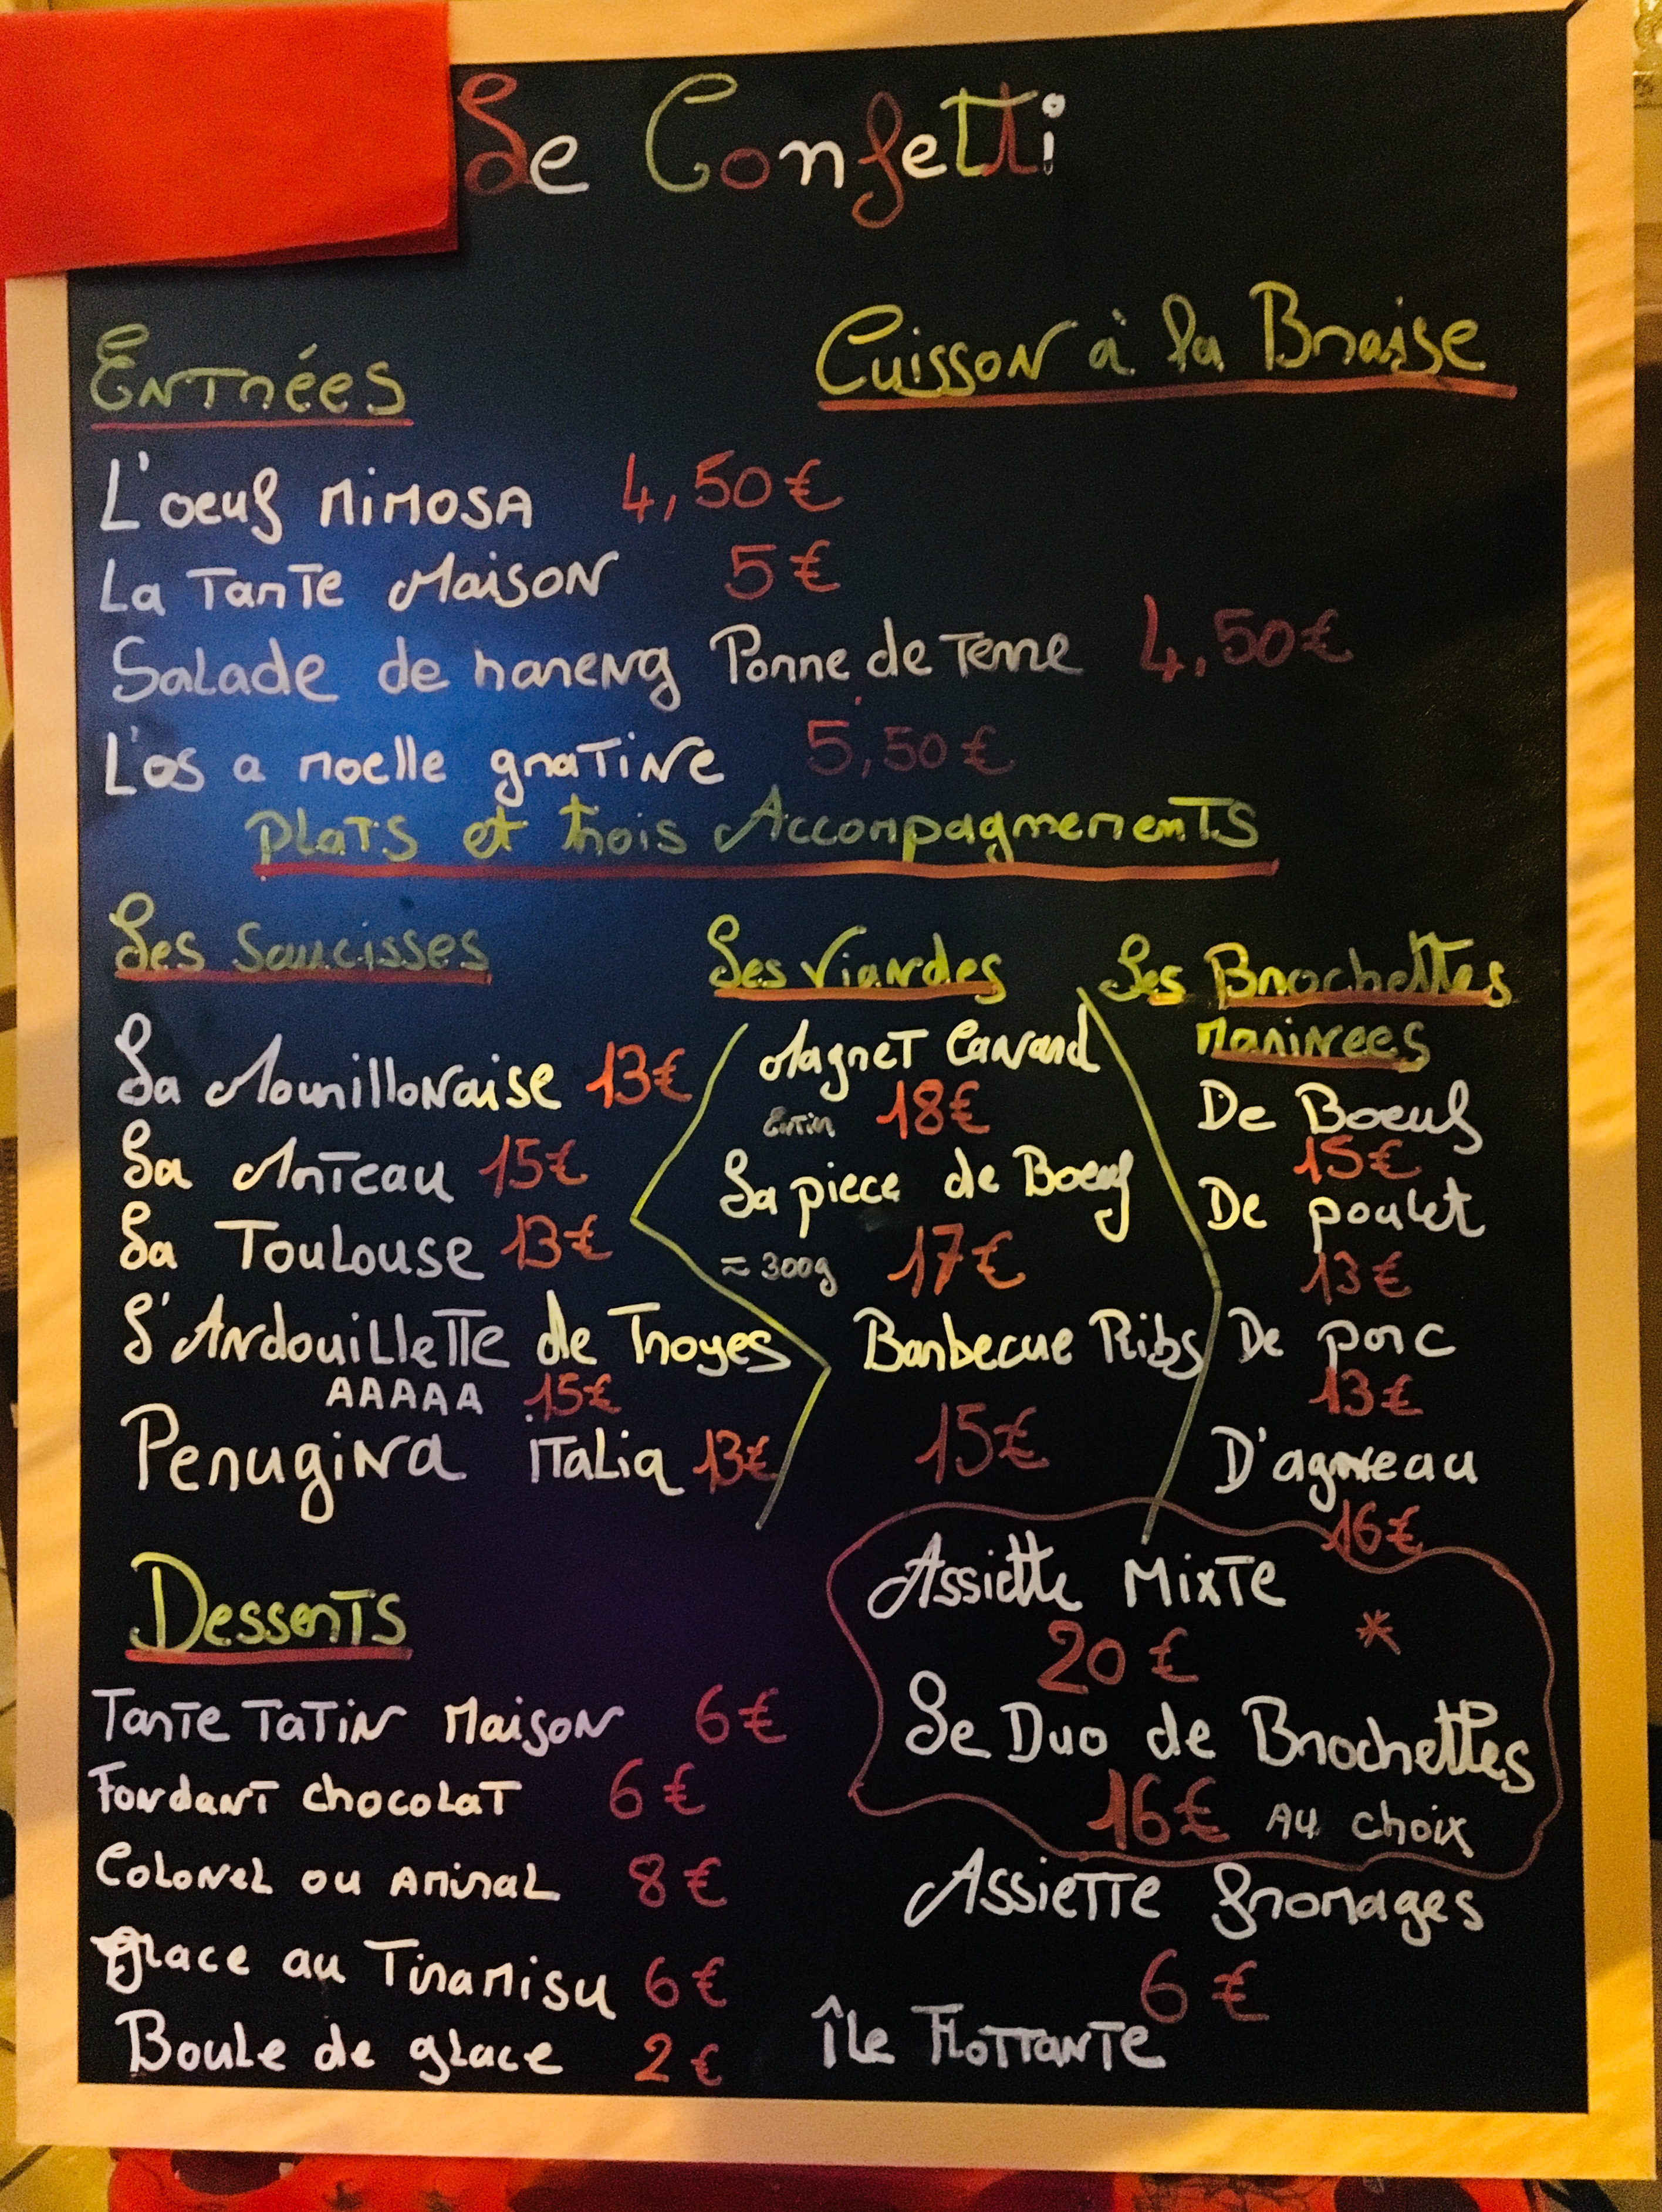 Le Confetti
Entrées
Cuisson à la Braise
L'oeuf MiMOSA 4,50€
La Tarte Maison 5€
Salade de hareng Pomme de Terre 4,50€
L'os a moelle gratiné 5,50€
Plats et trois Accompagnements
Les Saucisses
La Mourillonaise 13€
La Arteau 15€
La Toulouse 13€
L'Andouillette de Troyes
AAAAA 15€
Perugina iTaLia 13€
Les Viandes
Magret Canard
Entier 18€
La piece de Boeuf
≈ 300g 17€
Barbecue Ribs
15€
Les Brochettes
marinees
De Boeuf
15€
De poulet
13€
De porc
13€
D'agneau
16€
Assiette Mixte
20€ *
Le Duo de Brochettes
16€ AU choix
Assiette fromages
6€
Île Flottante
Desserts
Tarte Tatin Maison 6€
Fondant chocolat 6€
Colonel ou Amiral 8€
glace au Tiramisu 6€
Boule de glace 2€